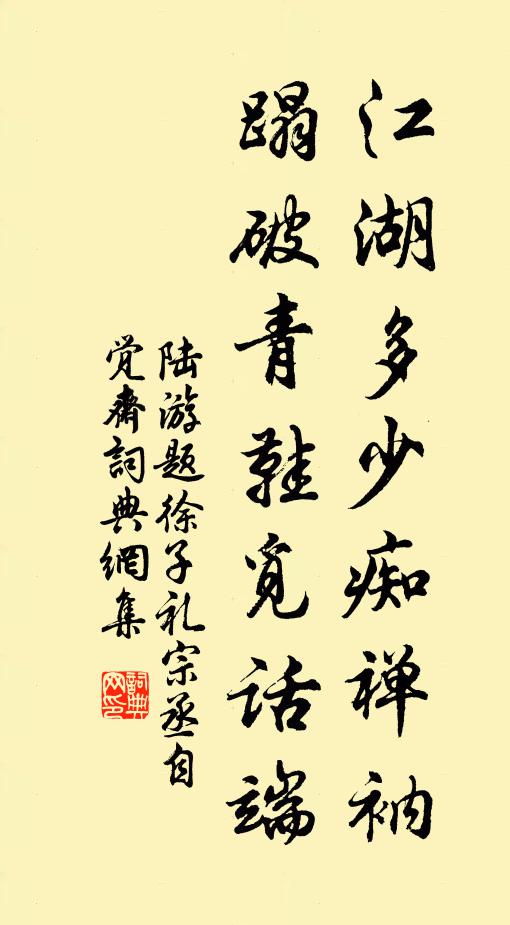 江湖多少痴禅衲
蹋破青鞋觅话端
陆游题徐子礼宗丞自
觉斋詞典網集
詞典
网印